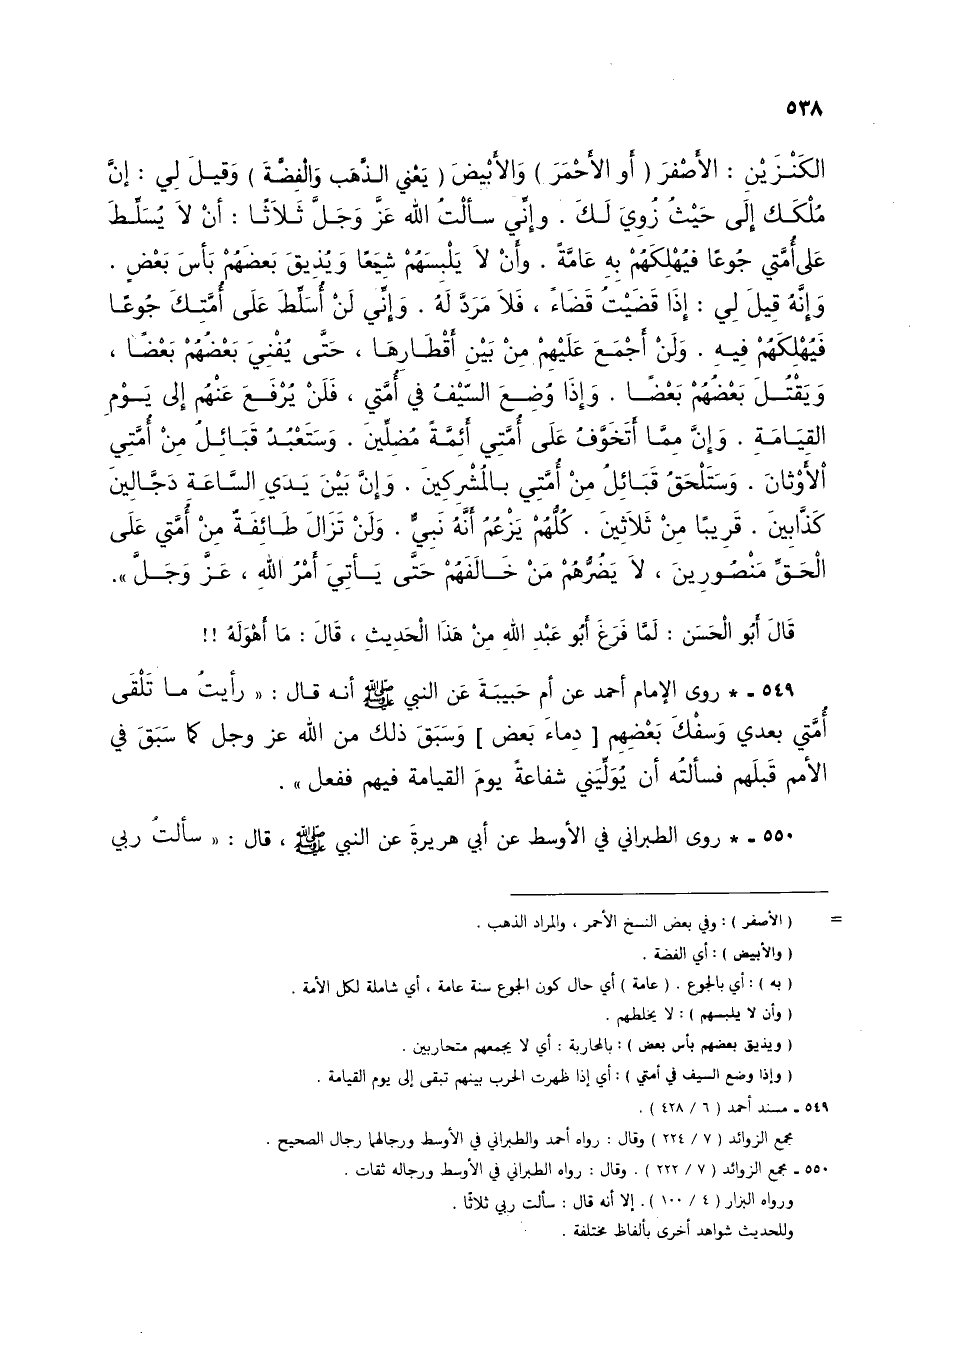 ٥٣٨
الكَنْـزَيْنِ : الأَصْفَرَ ( أو الأَحْمَرَ ) وَالأَبْيَضَ ( يَعْنِي الـذَّهَبَ وَالْفِضَّةَ ) وَقيـلَ لِي : إنَّ
مُلْكَـكَ إلَى حَيْثُ زُوِيَ لَـكَ . وإنِّي سـألْتُ الله عَزَّ وَجَلَّ ثَـلاَثًـا : أنْ لاَ يُسَلِّـطَ
عَلَى أُمَّتِي جُوعًا فَيُهْلِكَهُمْ بِهِ عَامَّةً . وأنْ لاَ يَلْبِسَهُمْ شِيَعًا وَيُذِيقَ بَعضَهُمْ بَأسَ بَعْضٍ .
وَإنَّهُ قِيلَ لِي : إذَا قَضَيْتُ قَضَاءً ، فَلاَ مَرَدَّ لَهُ . وَإنِّي لَنْ أُسَلِّطَ عَلَى أُمَّتِـكَ جُوعًـا
فَيُهْلِكَهُمْ فِيـهِ . وَلَنْ أجْمَـعَ عَلَيْهِمْ مِنْ بَيْنِ أَقْطَـارِهَـا ، حَتَّى يُفْنِيَ بَعْضُهُمْ بَعْضًـا ،
وَيَقْتُـلَ بَعْضُهُمْ بَعْضًـا . وَإذَا وُضِـعَ السَّيْفُ فِي أُمَّتِي ، فَلَنْ يُرْفَـعَ عَنْهُم إلى يَـوْمِ
القِيَـامَـةِ . وَإنَّ مِمَّـا أتَخَوَّفُ عَلَى أُمَّتِي أئِمَّةً مُضِلِّينَ . وَسَتَعْبُدُ قَبَـائِـلُ مِنْ أُمَّتِي
الأَوْثَانَ . وَسَتَلْحَقُ قَبَـائِلُ مِنْ أُمَّتِي بِـالْمُشْرِكِينَ . وَإنَّ بَيْنَ يَـدَيِ السَّـاعَـةِ دَجَّـالِينَ
كَذَّابِينَ . قَرِيبًا مِنْ ثَلاَثِينَ . كُلُّهُمْ يَزْعُمُ أنَّهُ نَبِيٌّ . وَلَنْ تَزَالَ طَـائِفَـةٌ مِنْ أُمَّتِي عَلَى
الْحَـقِّ مَنْصُـورِيـنَ ، لاَ يَضُرُّهُمْ مَنْ خَـالَفَهُمْ حَتَّى يَـأتِيَ أَمْرُ اللهِ ، عَـزَّ وَجَـلَّ » .
قَالَ أبُو الْحَسَنِ : لَمَّا فَرَغَ أبُو عَبْدِ اللهِ مِنْ هَذَا الْحَدِيثِ ، قَالَ : مَا أهْوَلَهُ !!
٥٤٩ ـ * روى الإمام أحمد عن أم حَبيبَةَ عَن النبي ﷺ أنـه قـال : « رأيتُ مـا تَلْقَى
أُمَّتِي بعدي وَسفْكَ بَعْضِهِم [ دماءَ بَعض ] وَسَبَقَ ذلك من الله عز وجل كما سَبَقَ في
الأمم قَبلَهم فسألتُه أن يُوَلِّيَنِي شفاعةً يومَ القيامة فيهم ففعل » .
٥٥٠ ـ * روى الطبراني في الأوسط عن أبي هريرةَ عن النبي ﷺ ، قال : « سـألتُ ربي
= ( الأصفر ) : وفي بعض النسخ الأحمر ، والمراد الذهب .
( والأبيض ) : أي الفضة .
( به ) : أي بالجوع . ( عامة ) أي حال كون الجوع سنة عامة ، أي شاملة لكل الأمة .
( وأن لا يلبسهم ) : لا يخلطهم .
( ويذيق بعضهم بأس بعض ) : بالمحاربة : أي لا يجمعهم متحاربين .
( وإذا وضع السيف في أمتي ) : أي إذا ظهرت الحرب بينهم تبقى إلى يوم القيامة .
٥٤٩ ـ مسند أحمد ( ٦ / ٤٢٨ ) .
مجمع الزوائد ( ٧ / ٢٢٤ ) وقال : رواه أحمد والطبراني في الأوسط ورجالهما رجال الصحيح .
٥٥٠ ـ مجمع الزوائد ( ٧ / ٢٢٢ ) . وقال : رواه الطبراني في الأوسط ورجاله ثقات .
ورواه البزار ( ٤ / ١٠٠ ) . إلا أنه قال : سألت ربي ثلاثا .
وللحديث شواهد أخرى بألفاظ مختلفة .